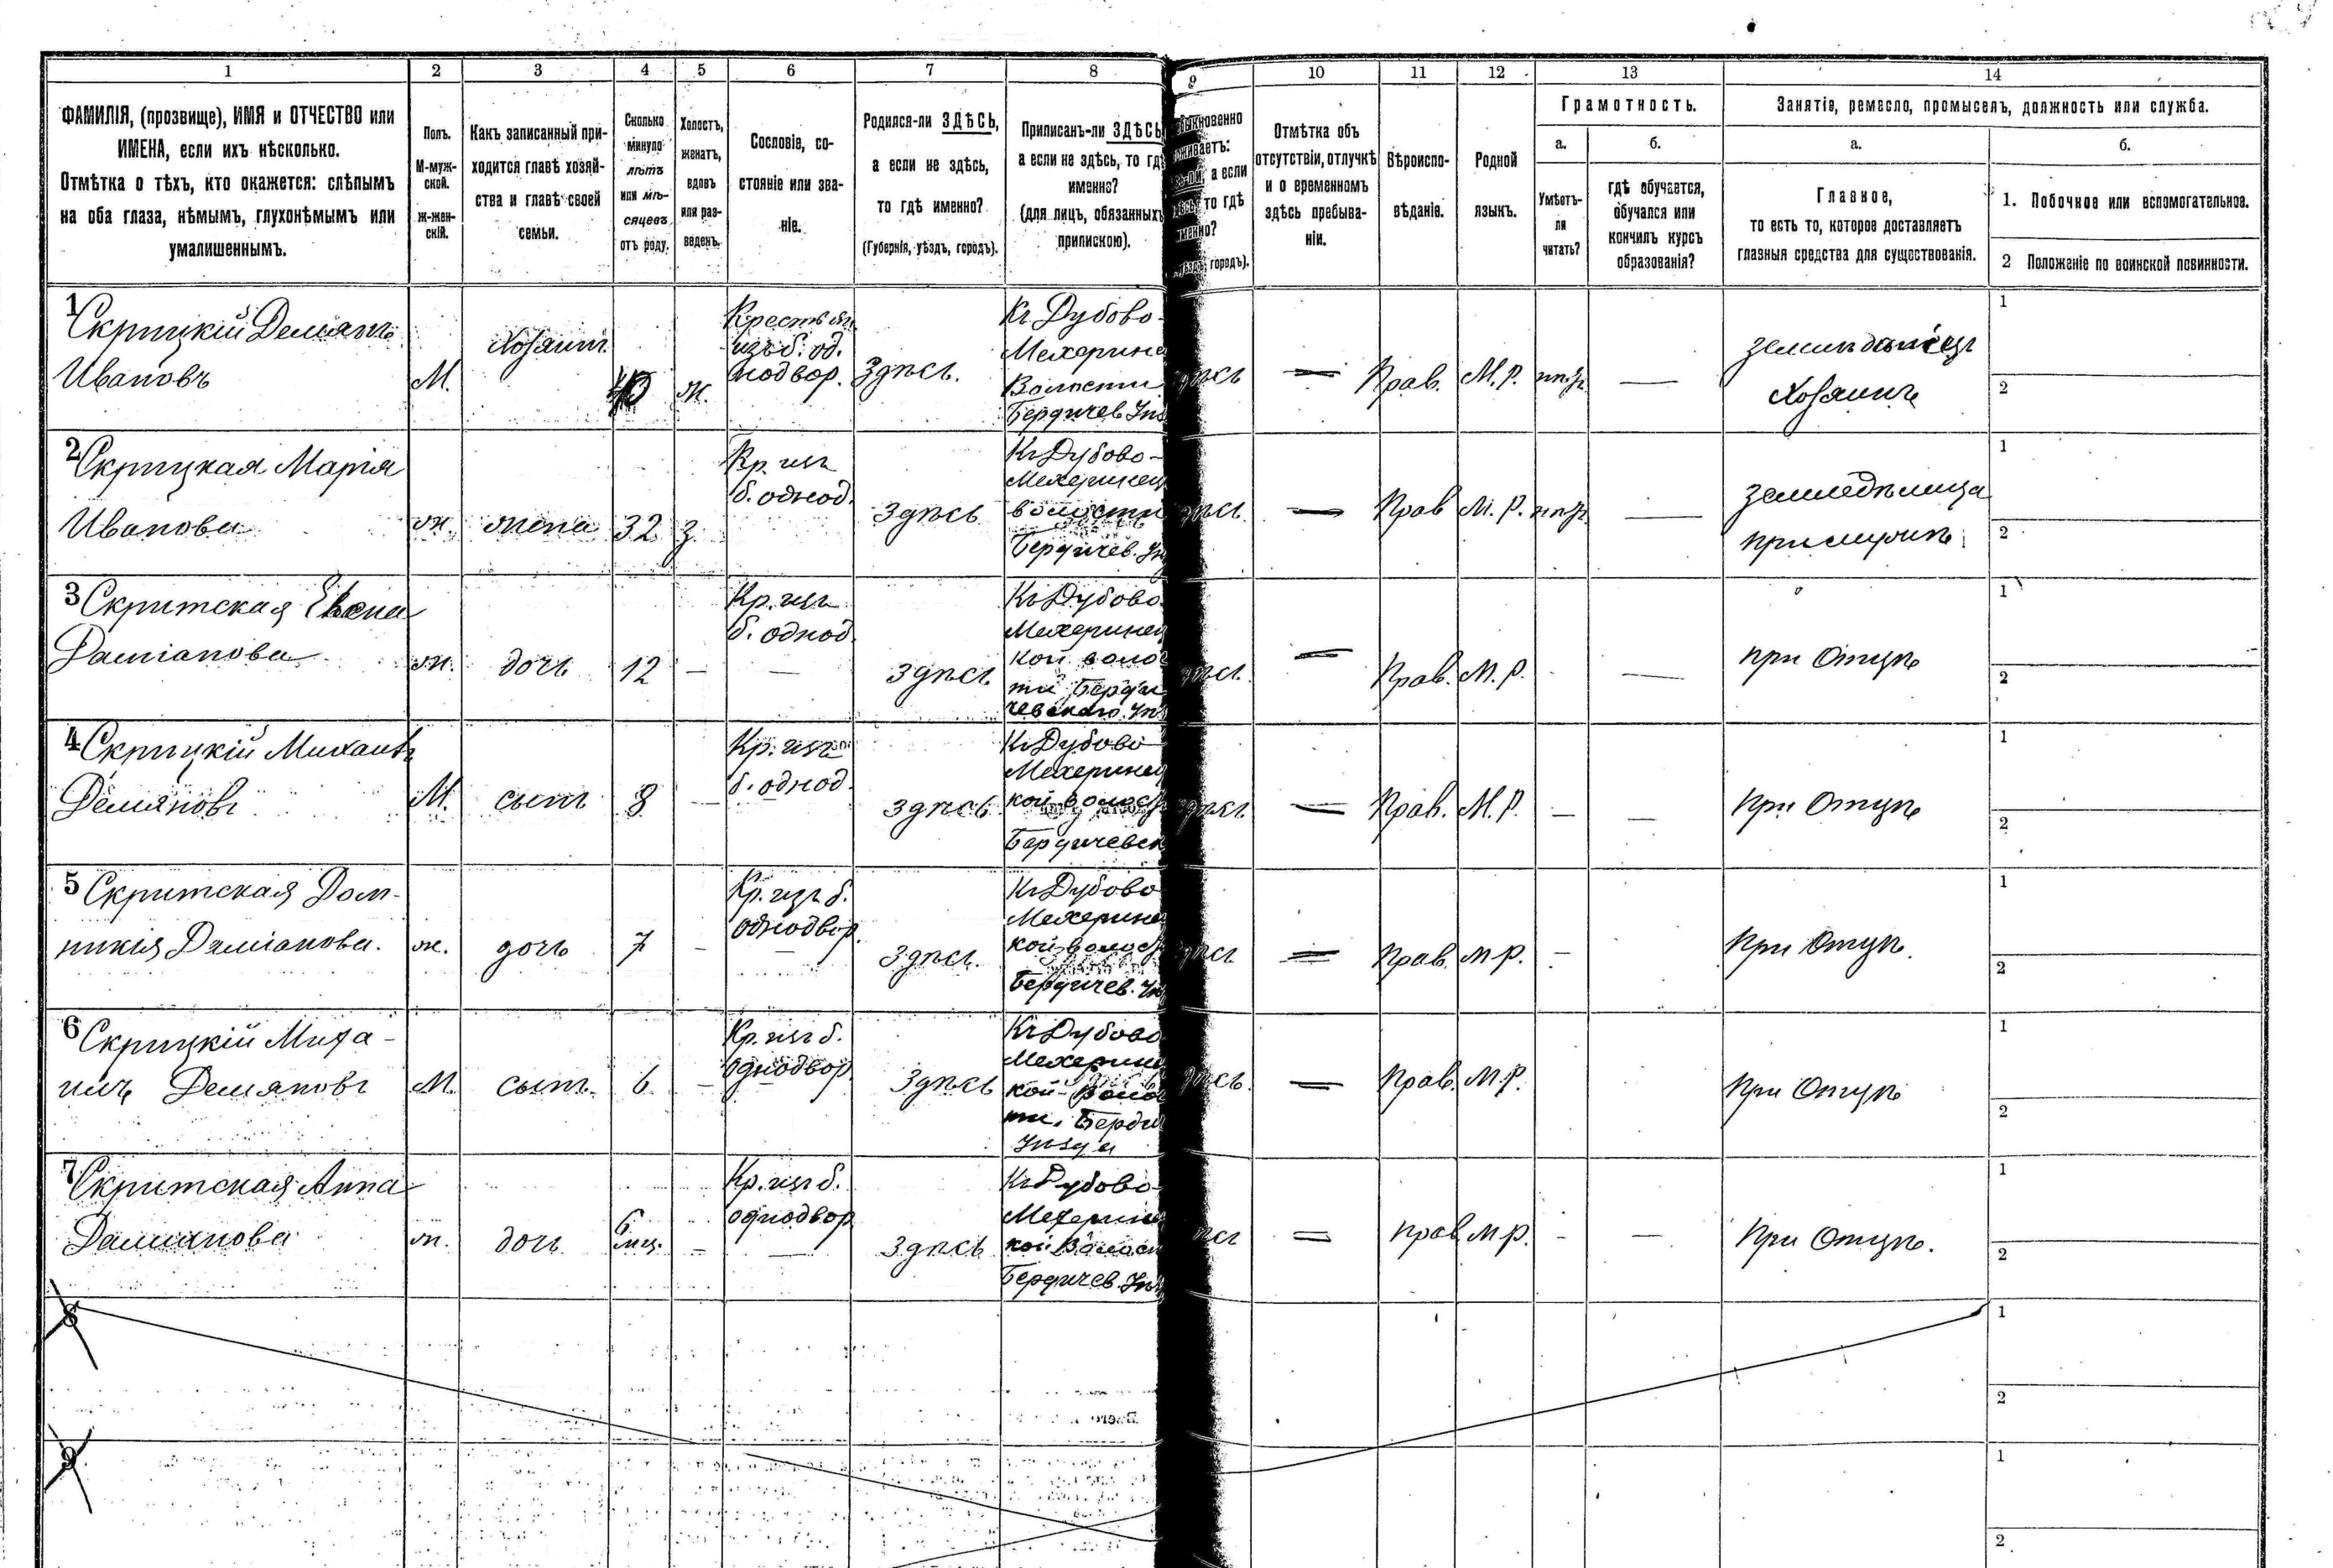 1 2 3 4 5 6 7 8 9 10 11 12 13 14
ФАМИЛІЯ, (прозвище), ИМЯ и ОТЧЕСТВО или
ИМЕНА, если ихъ нѣсколько.
Отмѣтка о тѣхъ, кто окажется: слѣпымъ
на оба глаза, нѣмымъ, глухонѣмымъ или
умалишеннымъ.
Полъ.
М-муж-
ской.
ж-жен-
скій.
Какъ записанный при-
ходится главѣ хозяй-
ства и главѣ своей
семьи.
Сколько
минуло
лѣтъ
или мѣ-
сяцевъ
отъ роду.
Холостъ,
женатъ,
вдовъ
или раз-
веденъ.
Сословіе, со-
стояніе или зва-
ніе.
Родился-ли ЗДѢСЬ,
а если не здѣсь,
то гдѣ именно?
(Губернія, уѣздъ, городъ).
Приписанъ-ли ЗДѢСЬ
а если не здѣсь, то гдѣ
именно?
(для лицъ, обязанныхъ
припискою).
а если
то гдѣ
городъ).
Отмѣтка объ
отсутствіи, отлучкѣ
и о временномъ
здѣсь пребыва-
ніи.
Вѣроиспо-
вѣданіе.
Родной
языкъ.
Грамотность.
а.
Умѣетъ-
ли
читать?
б.
гдѣ обучается,
обучался или
кончилъ курсъ
образованія?
Занятіе, ремесло, промыселъ, должность или служба.
а.
Главное,
то есть то, которое доставляетъ
главныя средства для существованія.
б.
1. Побочное или вспомогательное.
2 Положеніе по воинской повинности.
1
Скрицкій Демянъ
Ивановъ
М.
Хозяинъ
40
ж.
Крестьян.
изъ б. од.
нодвор.
Здѣсь.
Къ Дубово-
Мехерин
Волости
Бердичев. Уѣз
—
Прав.
М. Р.
—
Хозяинъ
1
2
2
Скрицкая Марія
Иванова
ж.
жена
32
з.
Кр. изъ
б. однод.
Здѣсь
Къ Дубово-
Мехеринец
волости
Бердичев. Уѣ
—
Прав
М. Р.
—
земледѣлица
при мужѣ
1
2
3
Скритская
Даміанова
ж.
дочь
12
—
Кр. изъ
б. однод.
—
Здѣсь
Къ Дубово
Мехеринец
кой волос
ти Берди
чевскаго Уѣз
—
Прав.
М. Р.
—
при Отцѣ
1
2
4
Скрицкій Михаилъ
Демяновъ
М.
сынъ
8
—
Кр. изъ
б. однод.
здѣсь
Къ Дубово
Мехеринец
кой волос
Бердичевск
—
Прав.
М. Р.
—
—
При Отцѣ
1
2
5
Скритская Дом-
никія Даміанова.
ж.
дочь
7
—
Кр. изъ б.
однодвор.
—
Здѣсь.
Къ Дубово
Мехерине
кой волос
Бердичев. Уѣ
—
Прав.
М Р.
—
При Отцѣ.
1
2
6
Скрицкій Миха-
илъ Демяновъ
М.
сынъ
6
—
Кр. изъ б.
однодвор.
Здѣсь
Къ Дубово
Мехерине
кой Волос
ти, Берди
Уѣзда
—
Прав.
М. Р.
При Отцѣ
1
2
7
Скритская Анна
Даміанова
ж.
дочь
6
мец.
—
Кр. изъ б.
однодвор
—
Здѣсь
Къ Дубово-
Мехерин
кой Волост
Бердичев. Уѣз
—
Прав
М Р.
—
—
При Отцѣ.
1
2
8
1
2
9
1
2